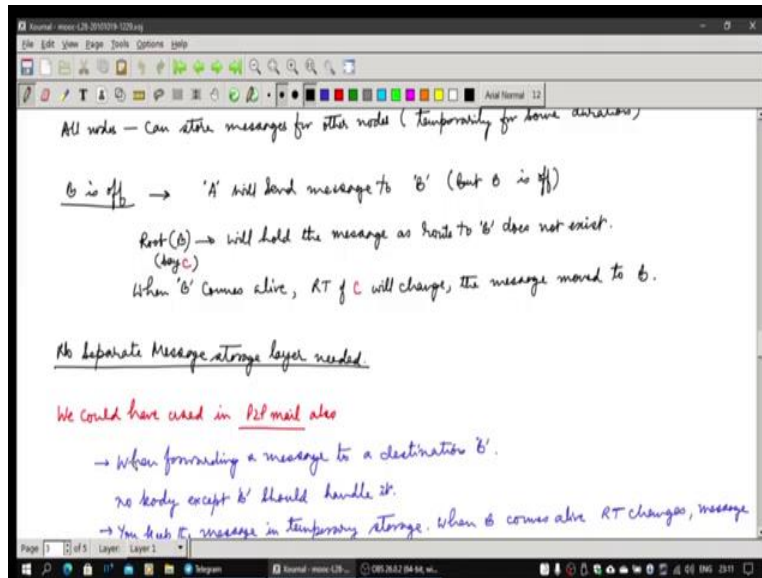 Xournal - mooc-L28-20101019-1229.xoj
File Edit View Page Tools Options Help
Arial Normal 12
All nodes — Can store messages for other nodes (temporarily for some duration)
B is off → 'A' will send message to 'B' (but B is off)
Root (B) → will hold the message as route to 'B' does not exist.
(say C)
When 'B' comes alive, RT of C will change, the message moved to B.
No Separate Message storage layer needed.
We could have used in P2P mail also
→ When forwarding a message to a destination 'B'.
no body except 'B' should handle it.
→ You message in temporary storage. When B comes alive RT changes, message
Page 3 of 5 Layer: Layer 1
Telegram Xournal - mooc-L28-... OBS 26.0.2 (64-bit, wi... ENG 23:11